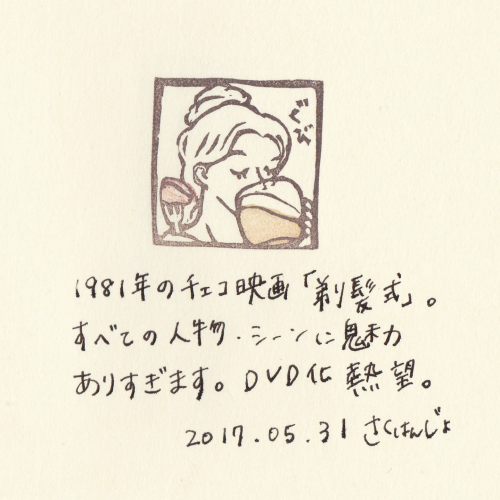 ぐび
1981年のチェコ映画「剃髪式」。
すべての人物・シーンに魅力
ありすぎます。DVD化熱望。
2017.05.31 さくはんじょ